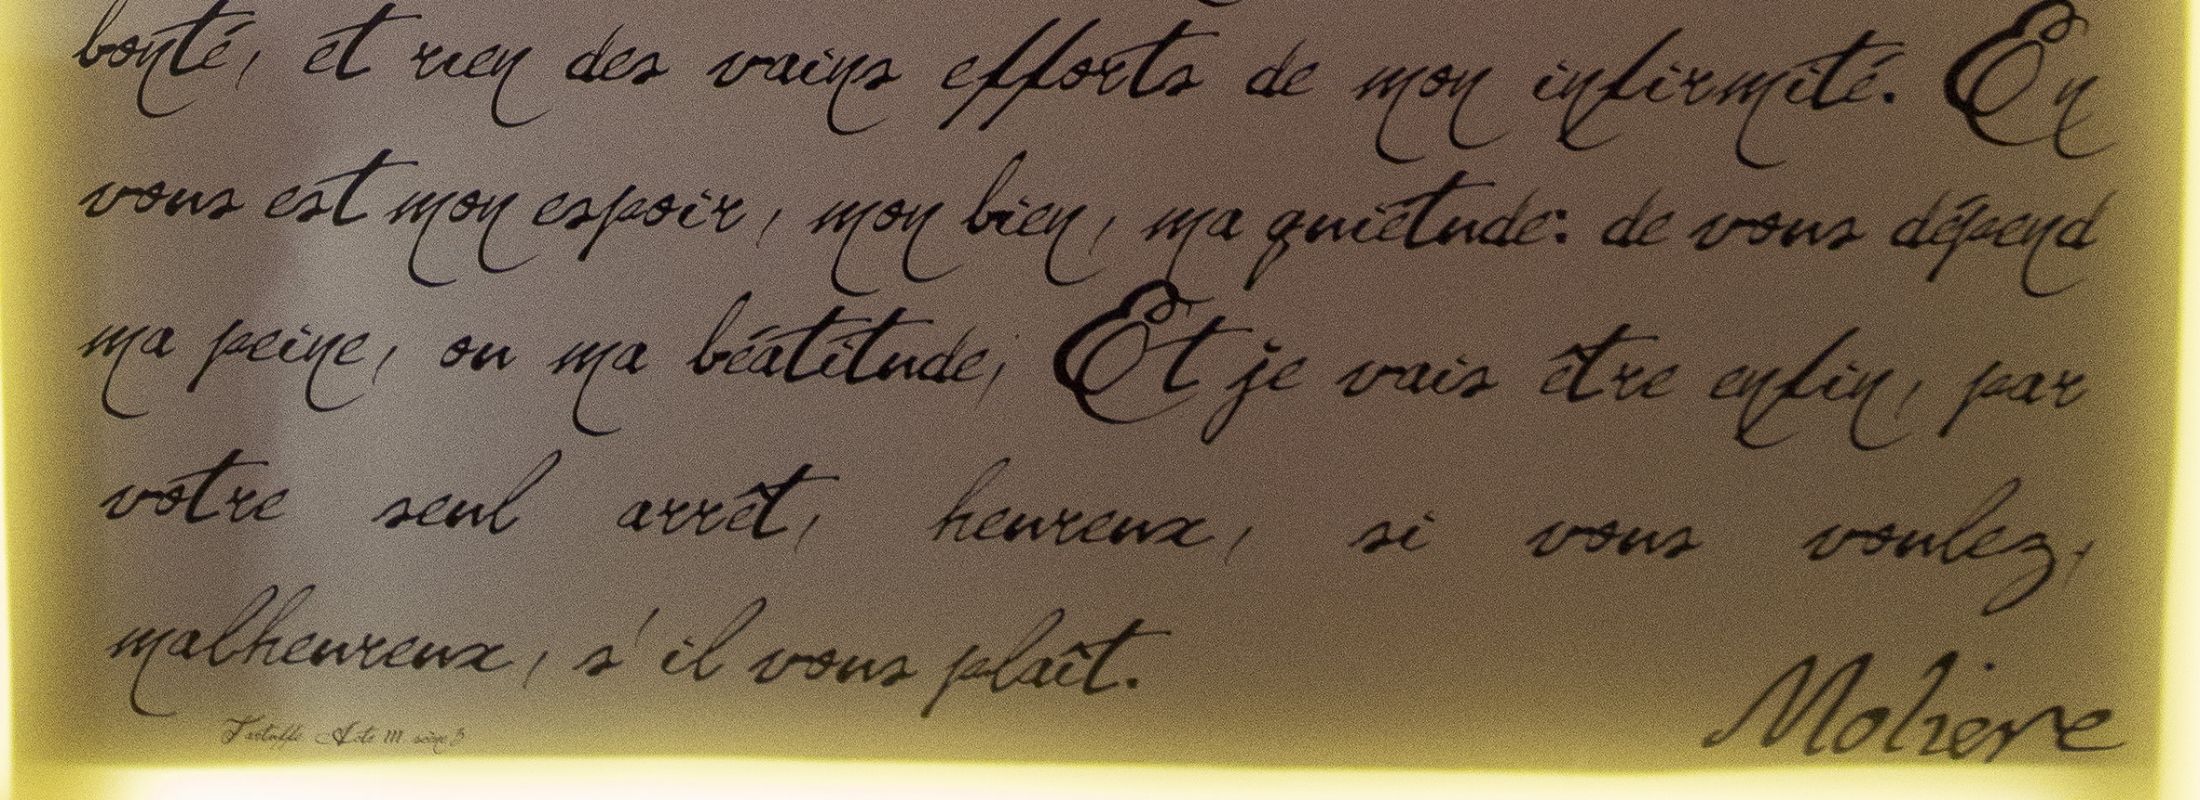 bonté, et rien des vains efforts de mon infirmité. En
vous est mon espoir, mon bien, ma quiétude: de vous dépend
ma peine, ou ma béatitude; Et je vais être enfin, par
votre seul arrêt, heureux, si vous voulez,
malheureux, s'il vous plaît.
Molière
Tartuffe Acte III scène 3